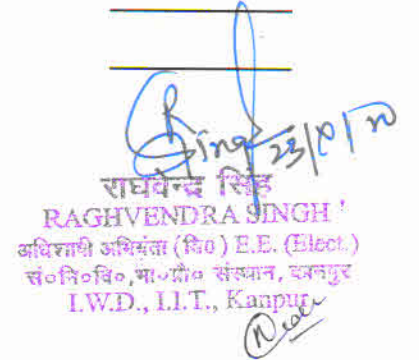 R Singh 23/
राघवेन्द्र सिंह
RAGHVENDRA SINGH
अधिशाषी अभियंता (वि०) E.E. (Elect.)
सं०नि०वि०, भा०प्रौ० संस्थान, कानपुर
I.W.D., I.I.T., Kanpur